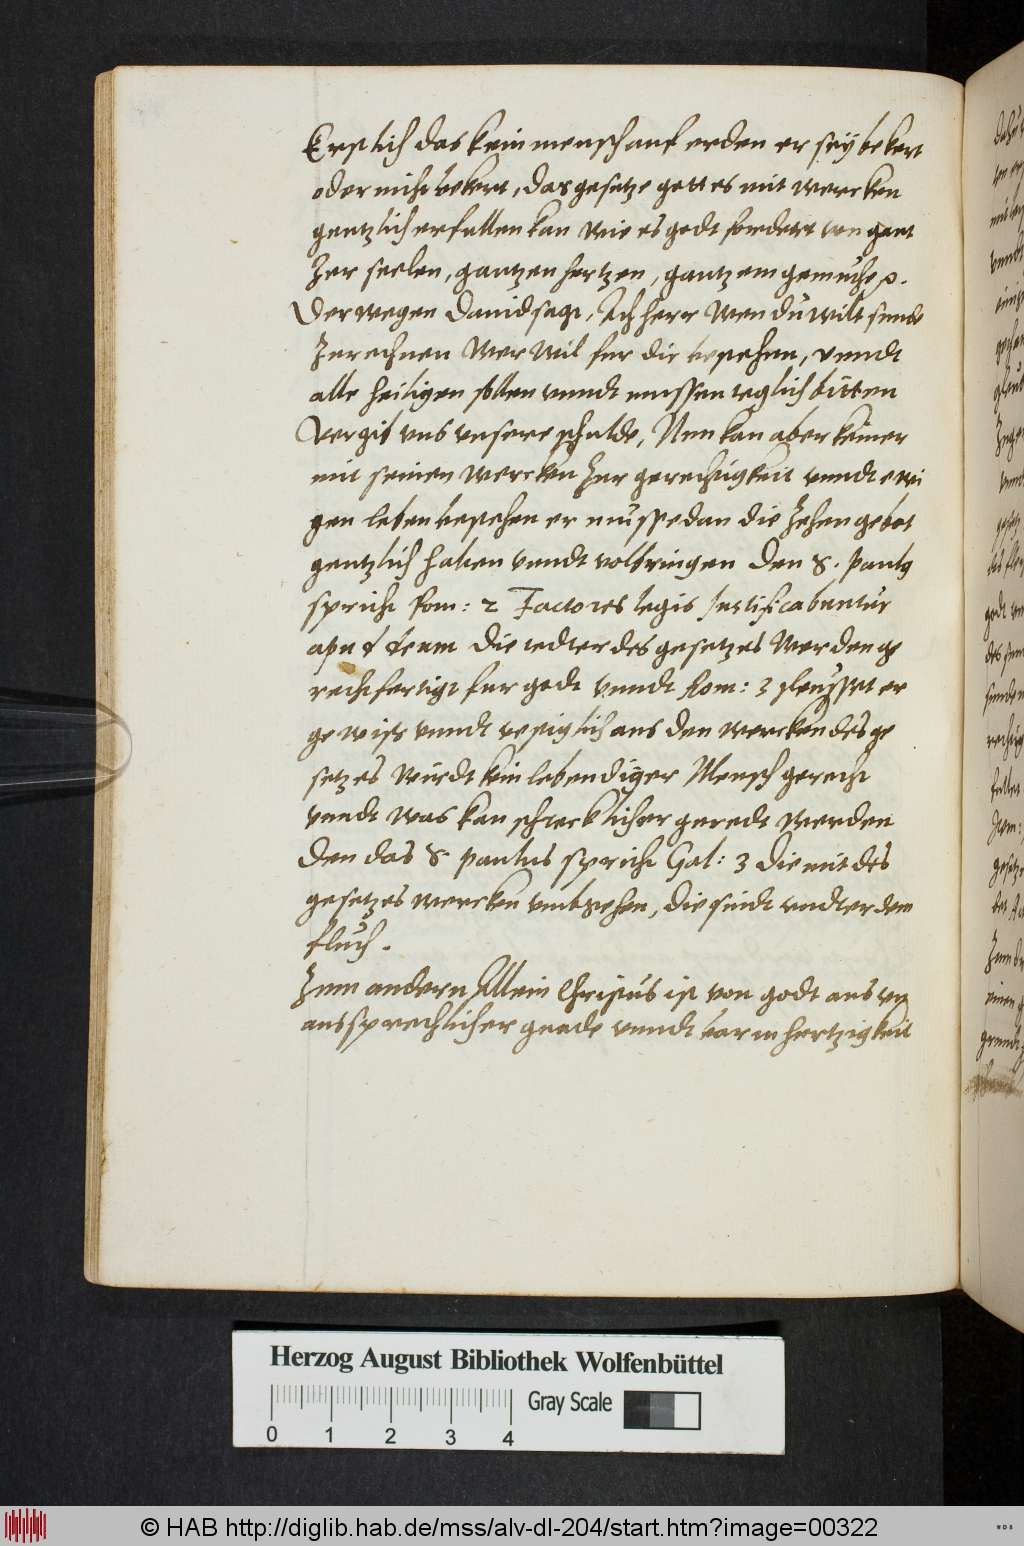 Erstlich das kein mensch auf erden er seÿ bekert
oder nicht bekert, das gesetze gottes mit wercken
gentzlich erfullen kan wie es godt fordert von gant
zer seelen, gantzen hertzen, gantzem gemuthe
Derwegen Dauid sagt, Ach herr Wen du wilt sunde
Zurechnen Wer wil fur dir bestehen, vnndt
alle heiligen sollen vnndt mussen teglich bitten
Vergib vns vnsere schulde, Nun kan aber keiner
mit seinen wercken zur gerechtigkeit vnndt ewi
gen leben bestehen er musse dan die zehen gebot
gentzlich halten vnndt volbringen Den S. Paulus
spricht Rom: 2 Factores legis Iustificabuntur
apud deum Die tedter des gesetzes Werden ge
rechtfertigt fur godt Vnndt Rom: 3 sleusset er
gewiss vnndt vestiglich aus den wercken des ge
setzes Wirdt kein lebendiger Mensch gerecht
Vnndt Was kan schrecklicher geredt werden
Den das S. Paulus spricht Gal: 3 Die mit des
gesetzes wercken vmbgehen, die sindt vndter dem
fluch.
Zum andern Allein Christus ist von godt aus vn
aussprechlicher gnade vnndt barmhertzigkeit
Herzog August Bibliothek Wolfenbüttel
0 1 2 3 4 Gray Scale
© HAB http://diglib.hab.de/mss/alv-dl-204/start.htm?image=00322